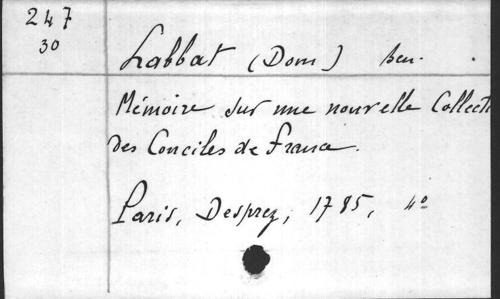 247
30
Labbat (Dom) ben.
Mémoire sur une nouvelle Collecti
des Conciles de France.
Paris, Desprez, 1785, 4º